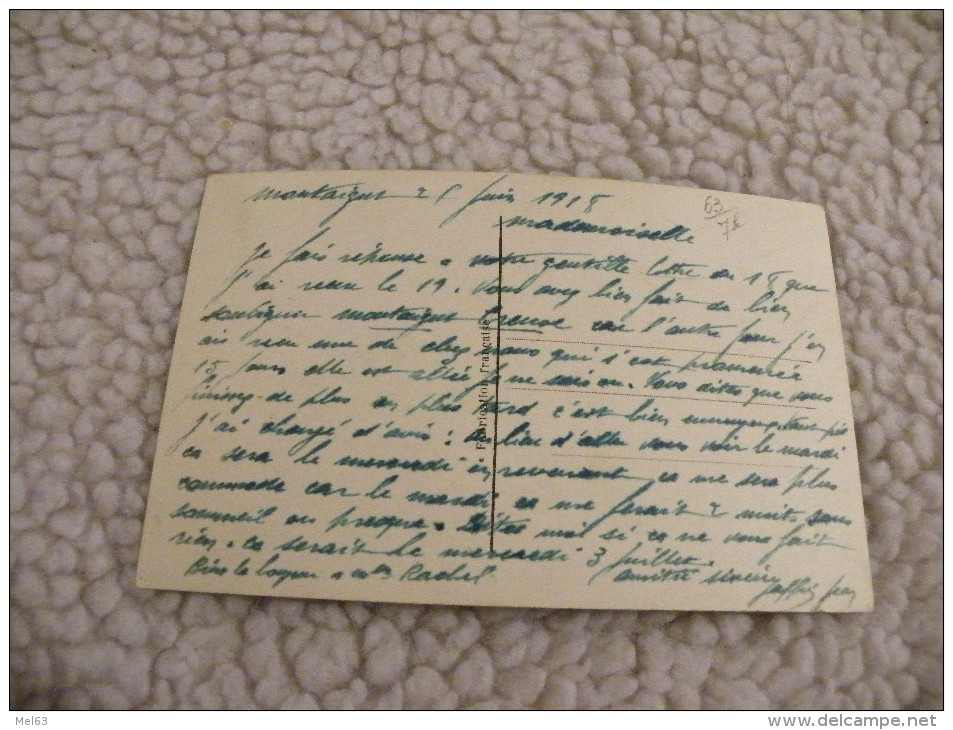 montaigut 25 juin 1918
63
7€
mademoiselle
je fais réponse a votre gentille lettre du 18 que
j'ai recu le 19. Vous avez bien fait de bien
souligner montaigut creuse car l'autre jour j'en
ai recu une de chez nous qui s'est promenée
15 jours elle est allée je ne sais ou. Vous dites que vous
de plus en plus tard c'est bien ennuyeux tant pis
j'ai changé d'avis: au lieu d'aller vous voir le mardi
ce sera le mercredi en revenant ça me sera plus
commode car le mardi ça me ferait 2 nuits sans
sommeil ou presque. Dites moi si ça ne vous fait
rien. ce serait le mercredi 3 juillet.
Bien le bonjour a Rachel
amitié sincère
jean
« Fabrication française »
Mel63
www.delcampe.net